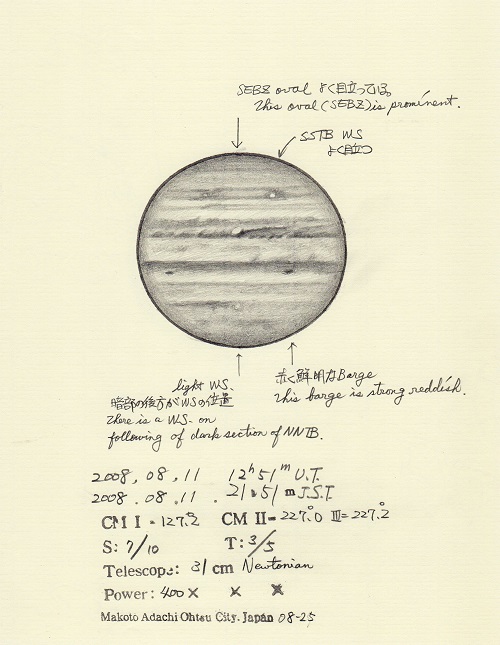 SEBZ oval よく目立っている。
This oval (SEBZ) is prominent.
SSTB WS
よく目立つ
light WS.
暗部の後方がWSの位置
There is a WS. on
following of dark section of NNTB.
赤く鮮明なBarge
This barge is strong reddish.
2008, 08, 11 12h 51m U.T.
2008. 08. 11. 21h 51m J.S.T.
CM I = 127.°2 CM II = 227.°0 III = 227.°2
S: 7/10 T: 3/5
Telescope: 31 cm Newtonian
Power: 400 × × ×
Makoto Adachi Ohtsu City. Japan 08-25